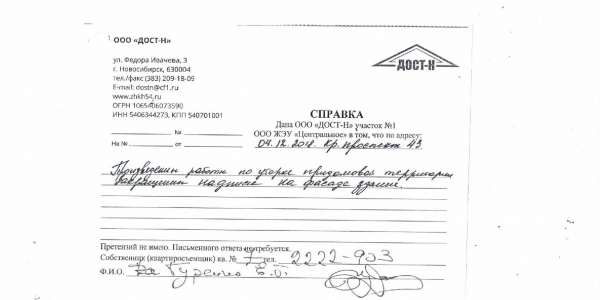 ООО «ДОСТ-Н»
ул. Федора Ивачева, 3
г. Новосибирск, 630004
тел./факс (383) 209-18-09
E-mail: dostn@cf1.ru
www.zhkh54.ru
ОГРН 1065406073590
ИНН 5406344273, КПП 540701001
№
На № от
ДОСТ-Н
СПРАВКА
Дана ООО «ДОСТ-Н» участок №1
ООО ЖЭУ «Центральное» в том, что по адресу:
04.12.2018. Кр. проспект 43
Произведены работы по уборке придомовой территории
закрашены надписи на фасаде здания.
Претензий не имею. Письменного ответа не требуется.
Собственник (квартиросъемщик) кв. № 7 тел. 2222-903
Ф.И.О.